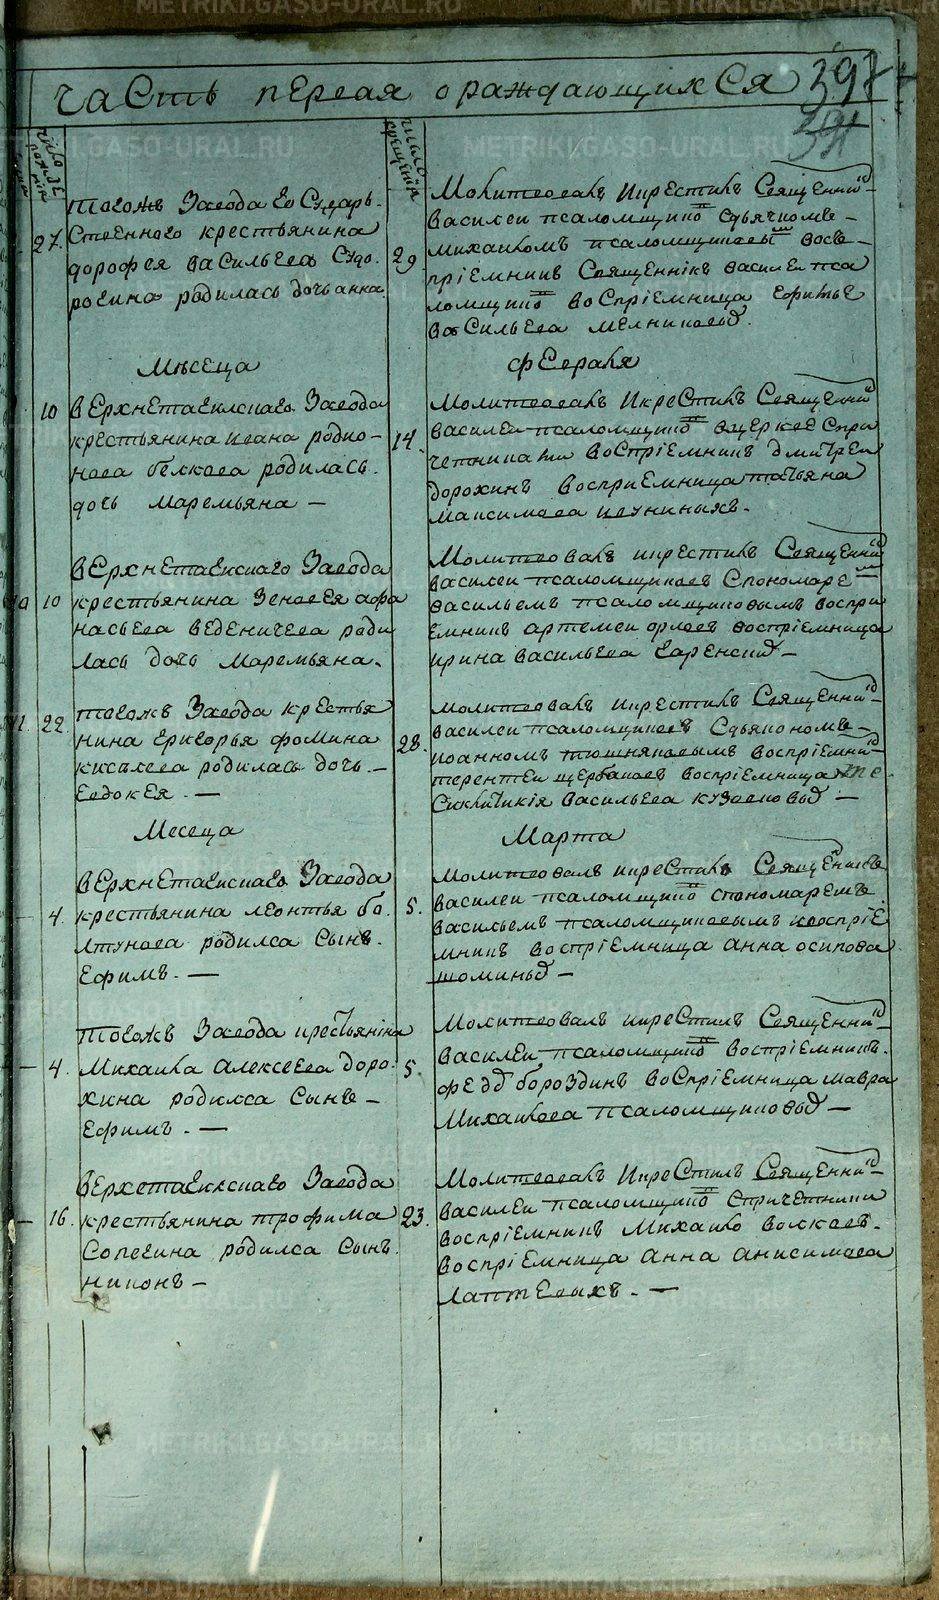 Часть первая ораждающихся 397
391
число рождения
число крещения
тогожъ Завода Государь-
27.Ственного крестьянина
дорофея васильева Сидо-
ровина родилась дочь анна
29. Молитвовалъ Икрестилъ Священикъ
василеи псаломщиковъ Сдьячкомъ
михаиломъ псаломщиковымъ вос-
пріемникъ Священнікъ василеи пса
ломщиковъ воСпріемница
ваСильева мелниковыхъ.
Мѣсеца февраля
10 вЕрхнЕтагилскаго Завода
крестьянина Ивана родио-
нова белкова родилась
дочь маремьяна —
14. Молитвовалъ Икрестилъ Священикъ
василеи псаломщиковъ вцеркве Спри
четники воСпріемникъ дмитреи
дорохинъ воспріемница татьяна
максимова
10 вЕрхнЕтагилскаго Завода
крестьянина Зеновея афа
насьева веденичева роди
лась дочь маремьяна.
Молитвовалъ икрестилъ Священикъ
василеи псаломщиковъ Спономаремъ
васильемъ псаломщиковымъ воспри
емникъ артемеи орловъ воспріемница
ирина васильева
22. тогожъ Завода крестья
нина григорья фомина
киселева родилась дочь —
Евдокея. —
28. молитвовалъ икрестилъ Священикъ
василеи псаломщиковъ Сдьякономъ
иоанномъ тюшняковымъ воспріемникъ
терентеи щербаковъ воспріемница тже
Сиклитикія васильева кузвеновыхъ —
Месеца Марта
4. вЕрхнЕтагилскаго Завода
крестьянина леонтья бо
лтунова родился Сынъ
Ефимъ. —
5. молитвовалъ икрестилъ Священикъ
василеи псаломщиковъ спономаремъ
васильемъ псаломщиковымъ ивоспріе
мникъ воспріемница анна осипова
шоминыхъ —
4. тогожъ Завода крестьянина
михаила алексеева доро
хина родилса Сынъ —
Ефимъ. —
5. молитвовалъ икрестилъ Священикъ
василеи псаломщиковъ воспріемникъ
федоръ бороздинъ воСпріемница мавра
михаилова псаломщиковыхъ —
16. вЕрхнетагилскаго Завода
крестьянина трофима
Сопегина родилса Сынъ
никонъ —
23. молитвовалъ Икрестилъ Священикъ
василеи псаломщиковъ Спричетники
воспріемникъ михаило волковъ.
воспріемница анна анисимова
лаптЕвыхъ. —